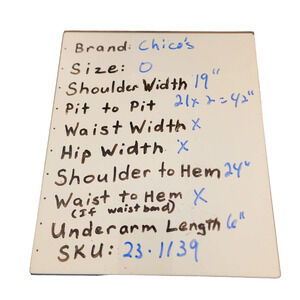 Brand: Chico's
Size: 0
Shoulder Width 19"
Pit to Pit 21 x 2 = 42"
Waist Width X
Hip Width X
Shoulder to Hem 24"
Waist to Hem X
(If waistband)
Underarm Length 6"
SKU: 23-1139